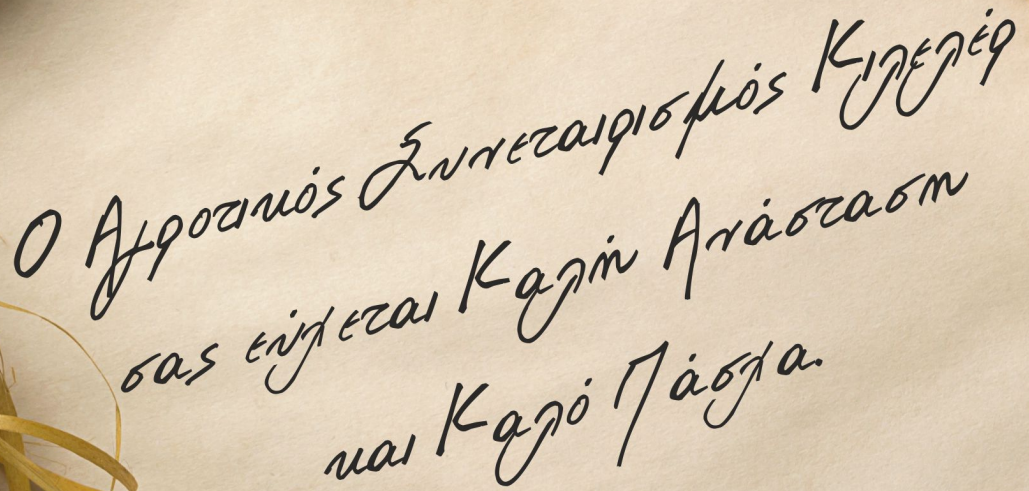 Ο Αγροτικός Συνεταιρισμός Κιλελέρ
σας εύχεται Καλή Ανάσταση
και Καλό Πάσχα.